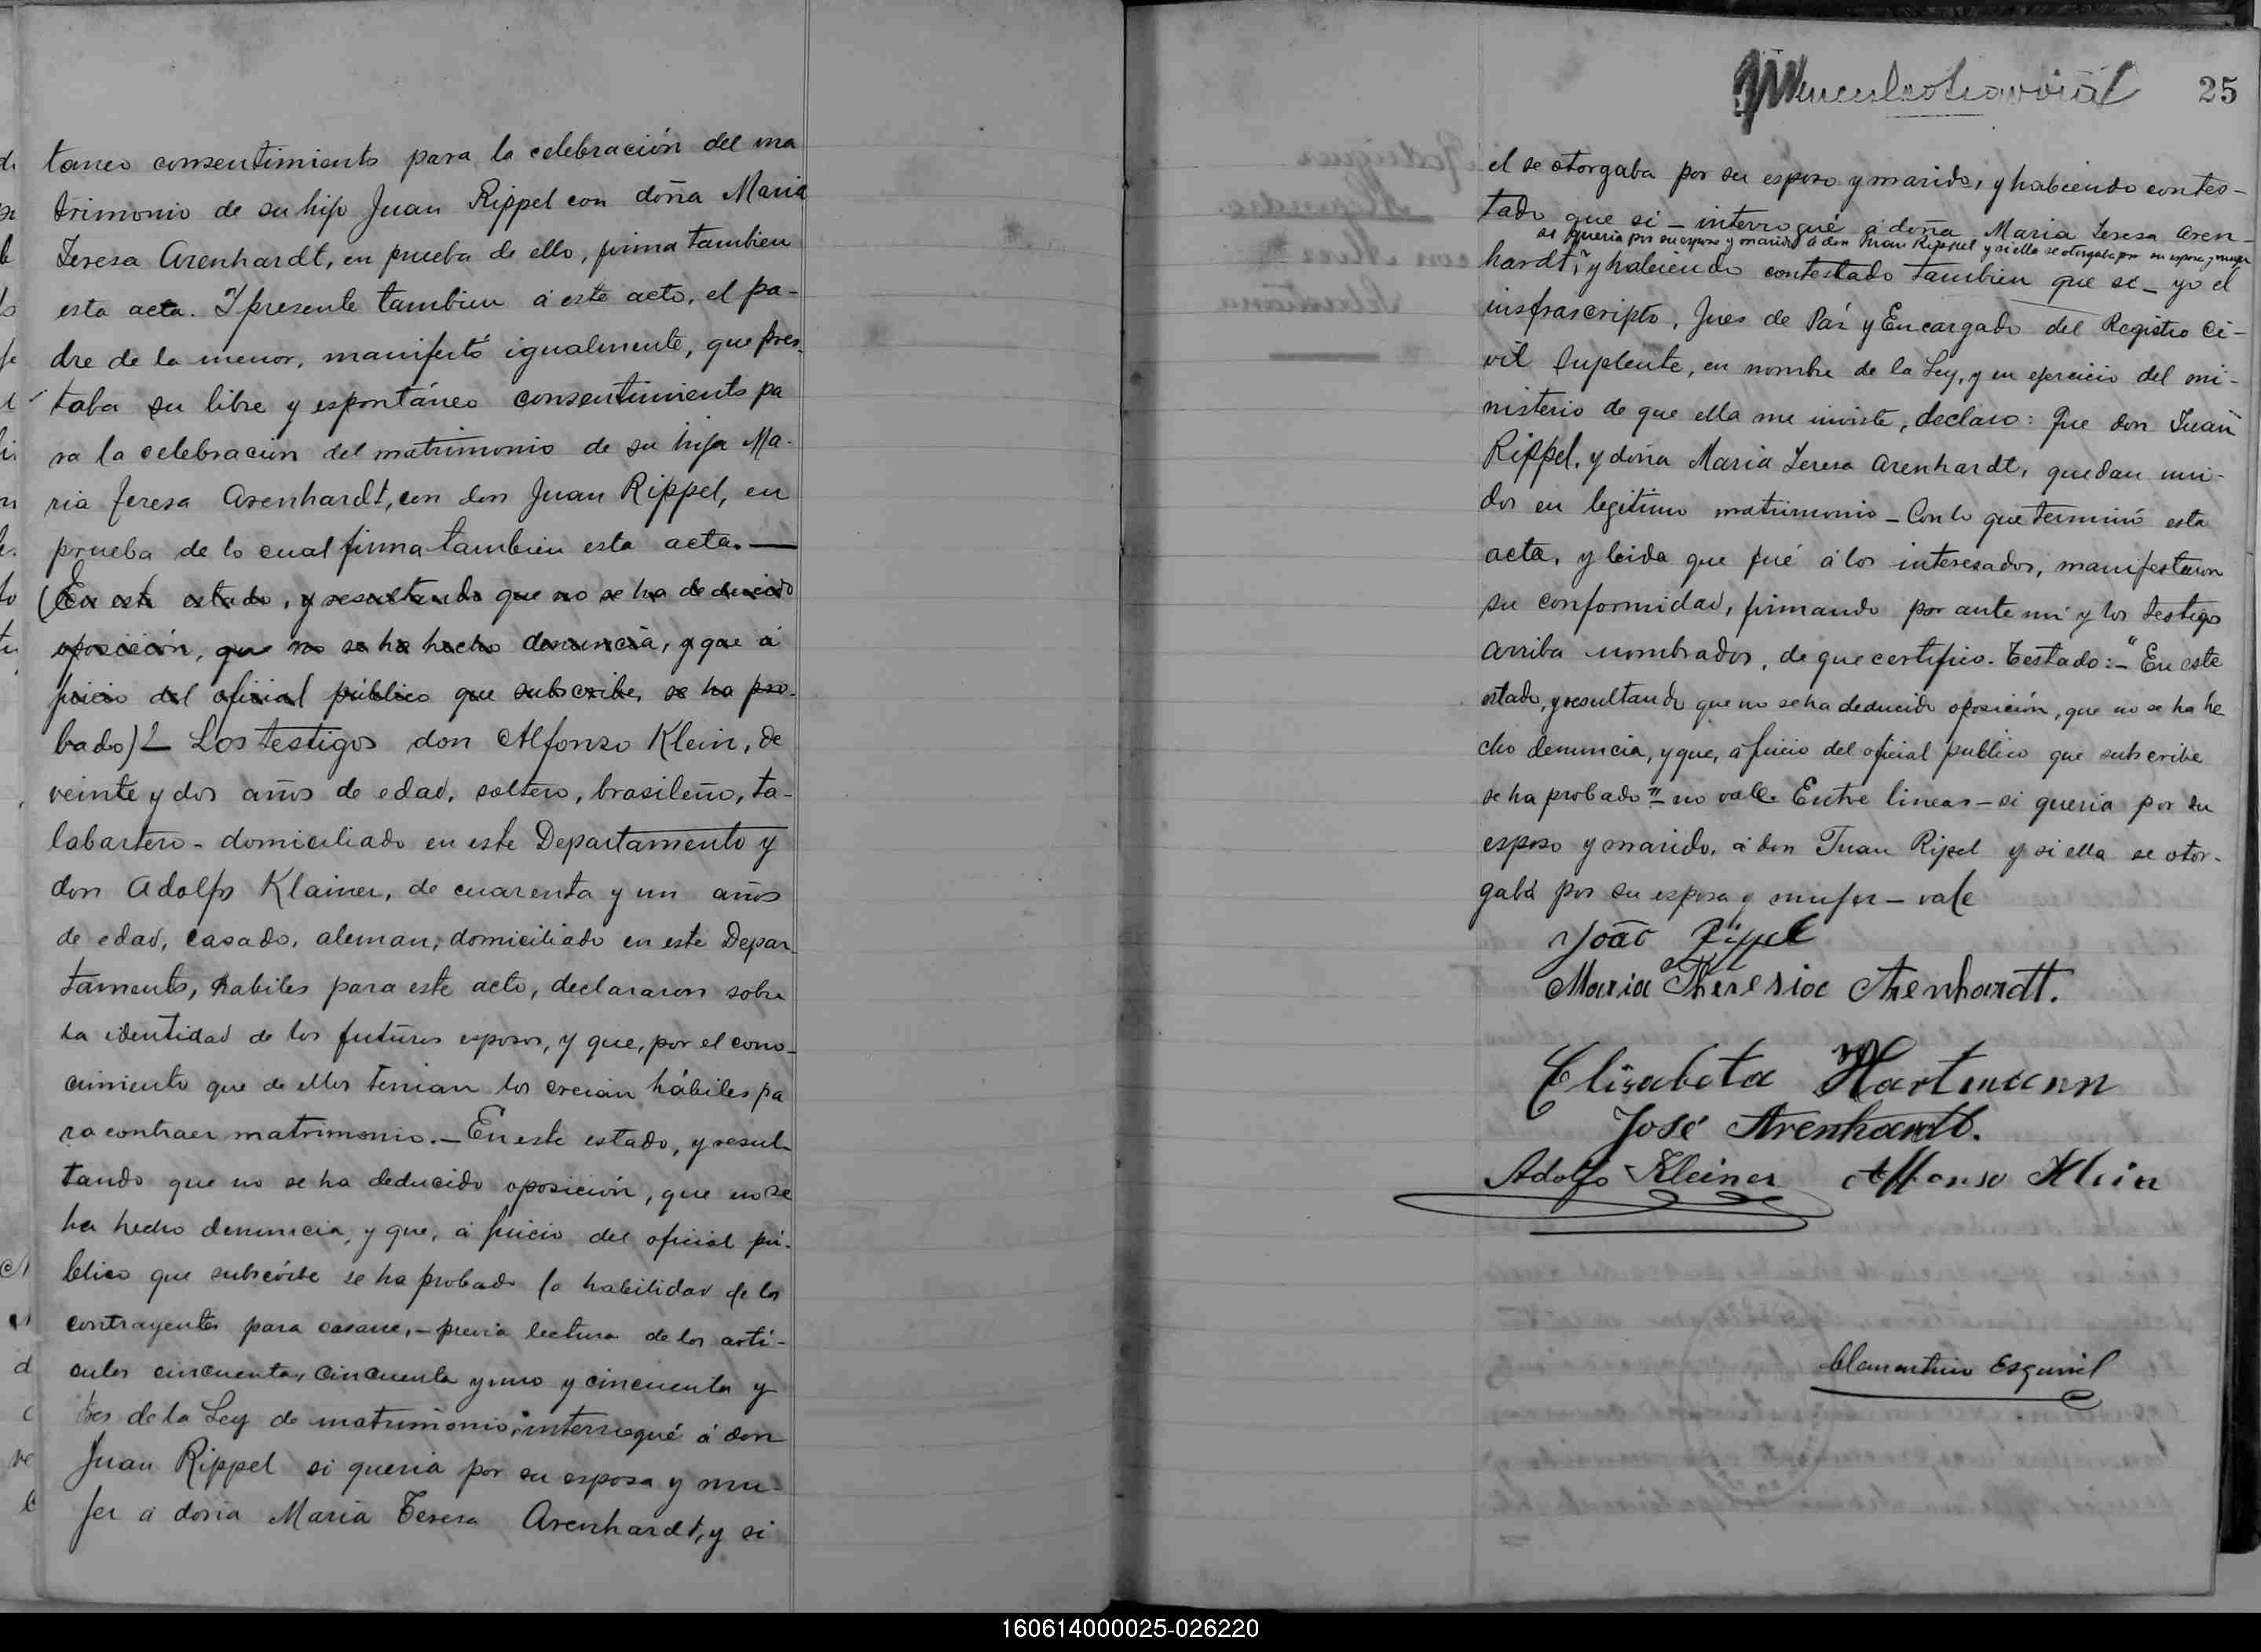 taneo consentimiento para la celebración del ma
trimonio de su hijo Juan Rippel con doña Maria
Teresa Arenhardt, en prueba de ello, firma tambien
esta acta. I presente tambien á este acto, el pa-
dre de la menor, manifestó igualmente, que pres-
taba su libre y espontáneo consentimiento pa
ra la celebración del matrimonio de su hija Ma-
ria Teresa Arenhardt, con don Juan Rippel, en
prueba de lo cual firma tambien esta acta.—
(En este estado, y resultando que no se ha deducido
oposición, que no se ha hecho denuncia, y que á
juicio del oficial público que subscribe, se ha pro-
bado) Los testigos don Alfonso Klein, de
veinte y dos años de edad, soltero, brasileño, ta-
labartero - domiciliado en este Departamento y
don Adolfo Klainer, de cuarenta y un años
de edad, casado, aleman, domiciliado en este Depar-
tamento, habiles para este acto, declararon sobre
la identidad de los futuros esposos, y que, por el cono-
cimiento que de ellos tenian los creian hábiles pa
ra contraer matrimonio.— En este estado, y resul-
tando que no se ha deducido oposición, que no se
ha hecho denuncia, y que, á juicio del oficial pú-
blico que subscribe se ha probado la habilidad de los
contrayentes para casarse,— previa lectura de los arti-
culos cincuenta, cincuenta y uno y cincuenta y
tres de la Ley de matrimonio, interrogué á don
Juan Rippel si queria por su esposa y mu-
jer á doña Maria Teresa Arenhardt, y si
25
el se otorgaba por su esposo y marido, y habiendo contes-
tado que si — interrogué á doña Maria Teresa Aren-
si queria por su esposo y marido á don Juan Rippel y si ella se otorgaba por su esposa y mujer
hardt, y habiendo contestado tambien que si — yo el
insfrascripto, Jues de Paz y Encargado del Registro Ci-
vil Suplente, en nombre de la Ley, y en ejercicio del mi-
nisterio de que ella me inviste, declaro: Que don Juan
Rippel, y doña Maria Teresa Arenhardt, quedan uni-
dos en legitimo matrimonio — Con lo que terminó esta
acta, y leida que fué á los interesados, manifestaron
su conformidad, firmando por ante mi y los testigos
arriba nombrados, de que certifico. Testado:— "En este
estado, y resultando que no se ha deducido oposición, que no se ha he
cho denuncia, y que, á juicio del oficial publico que subscribe
se ha probado" — no vale. Entre lineas — si queria por su
esposo y marido, á don Juan Ripel y si ella se otor-
gaba por su esposa y mujer — vale
João Rippel
Maria Theresia Arenhardt.
Elisabeta Hartmann
José Arenhardt.
Adolfo Kleiner Affonso Klein
Clementino Esquivel
160614000025-026220